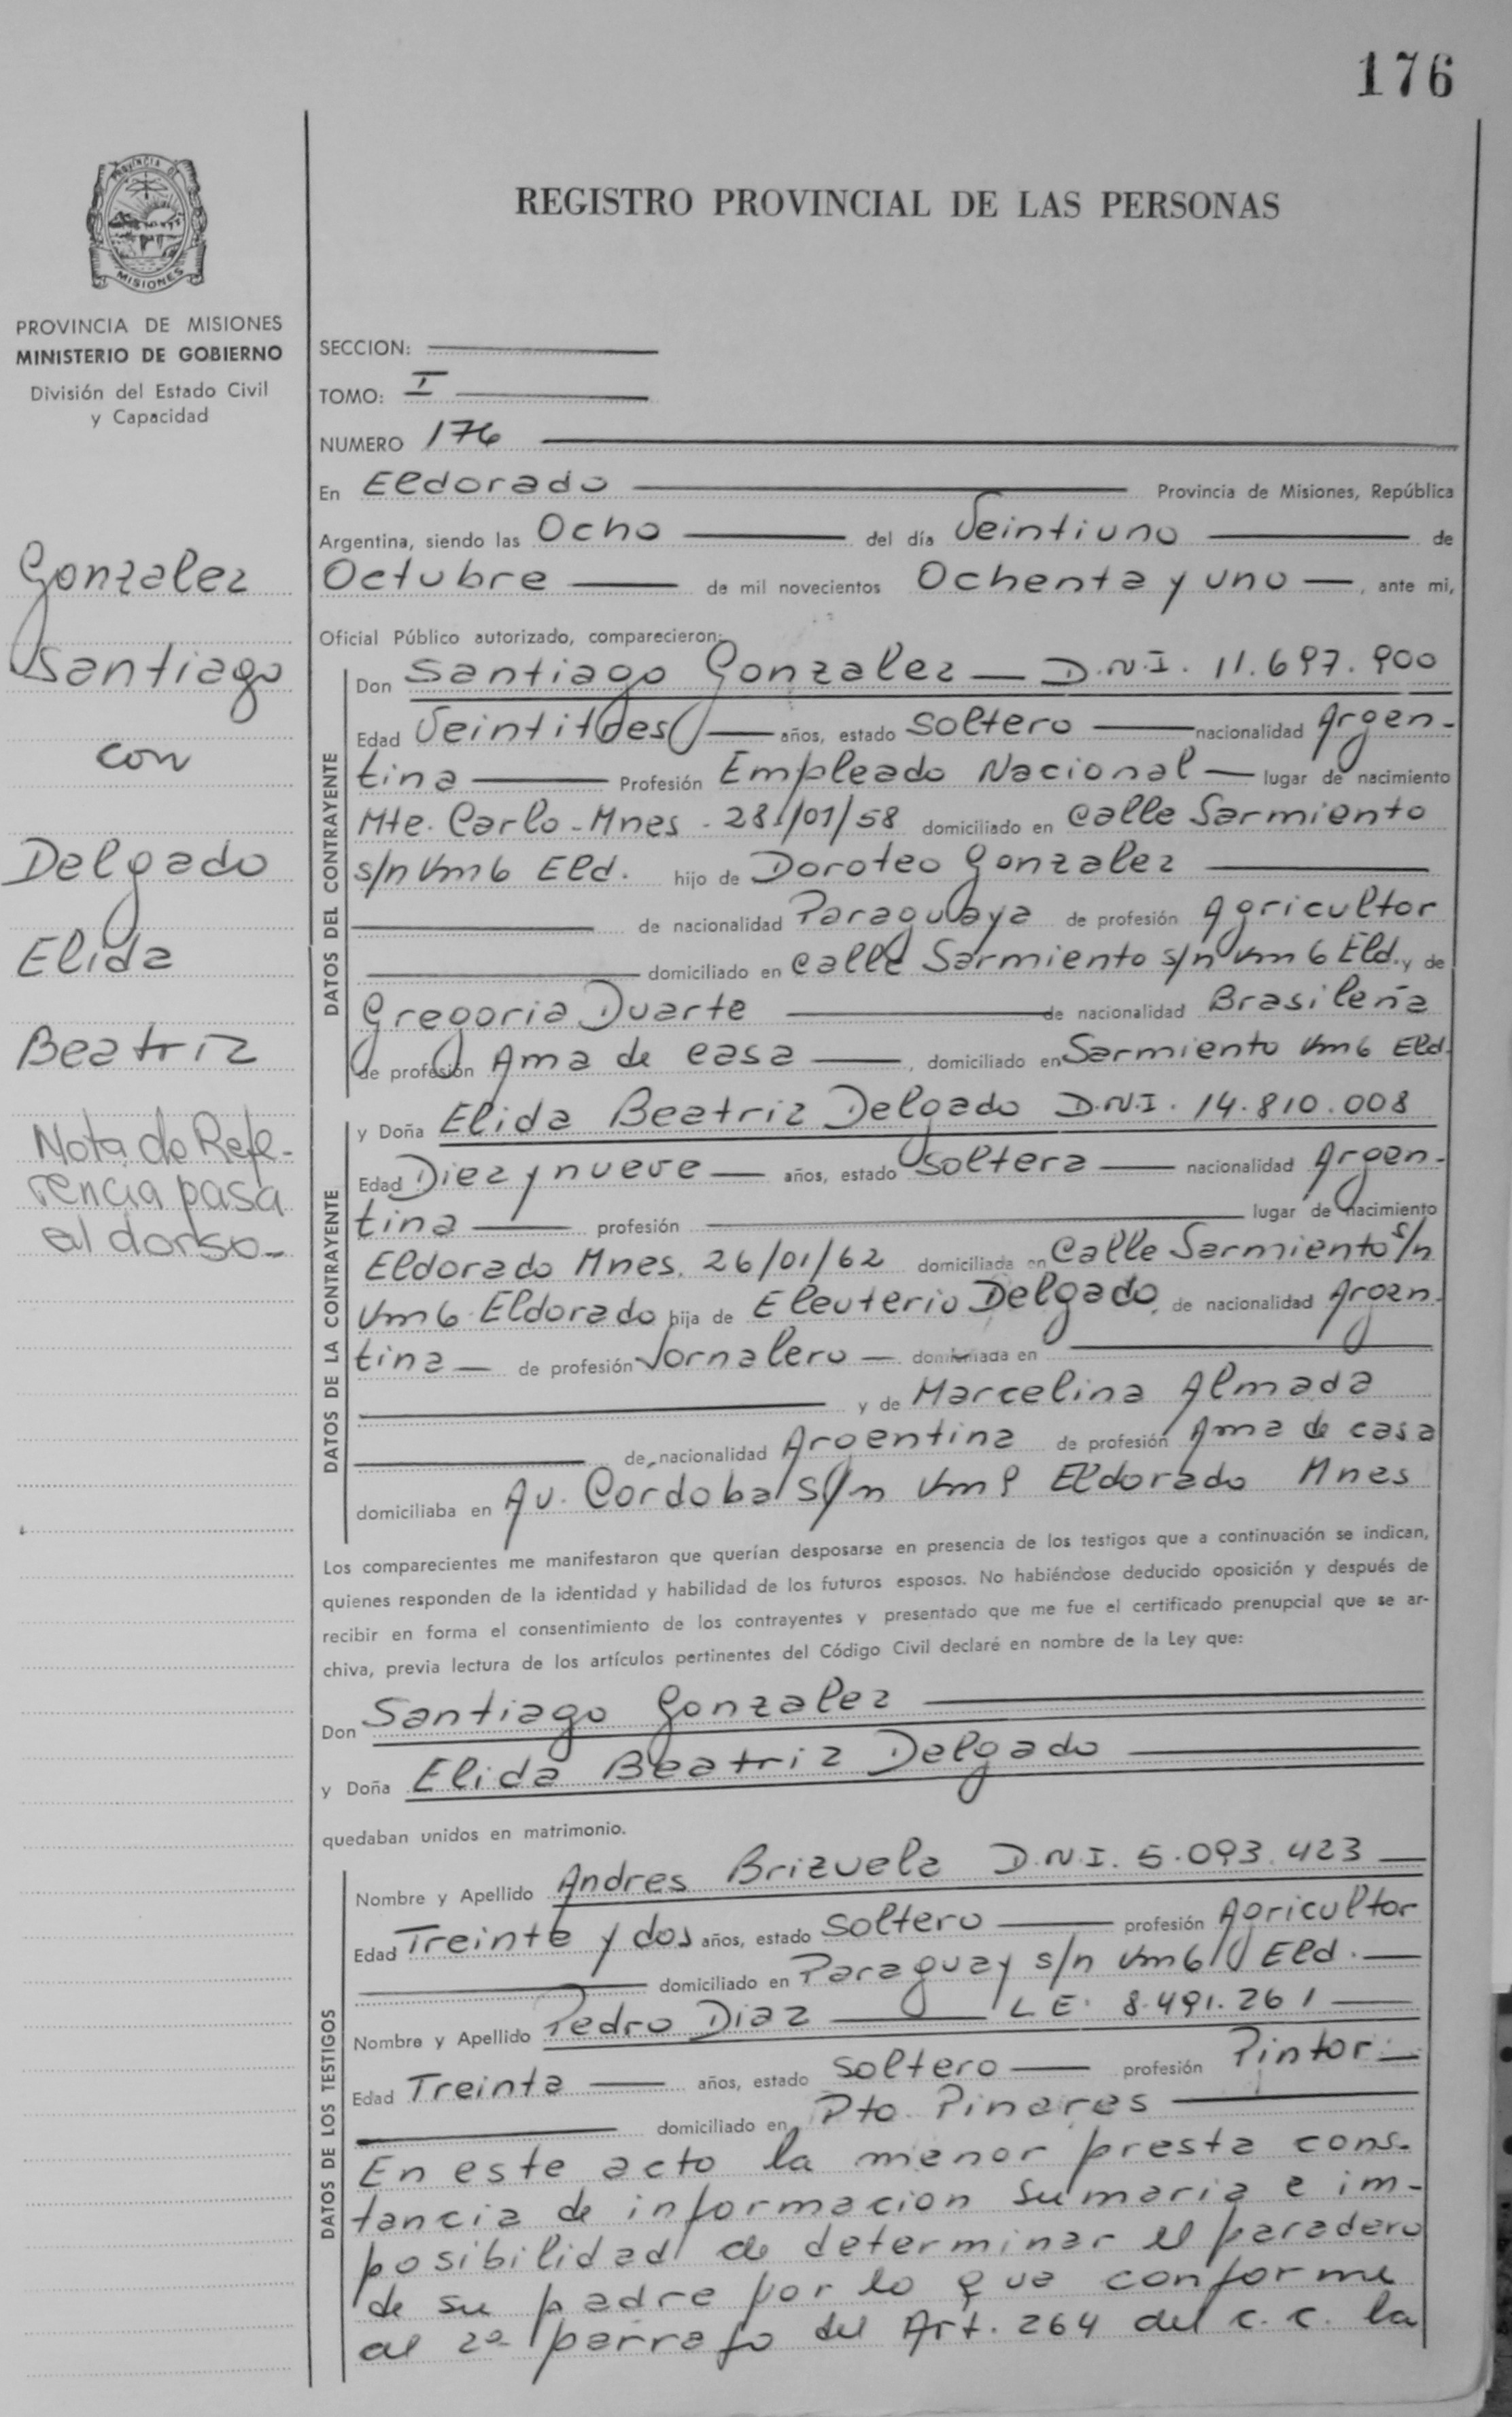 176
PROVINCIA DE
MISIONES
REGISTRO PROVINCIAL DE LAS PERSONAS
PROVINCIA DE MISIONES
MINISTERIO DE GOBIERNO
División del Estado Civil
y Capacidad
Gonzalez
Santiago
con
Delgado
Elida
Beatriz
Nota de Refe-
rencia pasa
al dorso-
SECCION:
TOMO: I
NUMERO 176
En Eldorado Provincia de Misiones, República
Argentina, siendo las Ocho del día Veintiuno de
Octubre de mil novecientos Ochenta y uno, ante mi,
Oficial Público autorizado, comparecieron:
DATOS DEL CONTRAYENTE
Don Santiago Gonzalez D.N.I. 11.697.900
Edad años, estado Soltero nacionalidad Argen-
tina Profesión Empleado Nacional lugar de nacimiento
Mte. Carlo - Mnes - 28/01/58 domiciliado en Calle Sarmiento
s/n Km6 Eld. hijo de Doroteo Gonzalez
de nacionalidad Paraguaya de profesión Agricultor
domiciliado en calle Sarmiento s/n Km 6 Eld. y de
Gregoria Duarte de nacionalidad Brasileña
de profesión Ama de casa, domiciliado en Sarmiento Km6 Eld.
DATOS DE LA CONTRAYENTE
y Doña Elida Beatriz Delgado D.N.I. 14.810.008
Edad Diez y nueve años, estado Soltera nacionalidad Argen-
tina profesión lugar de nacimiento
Eldorado Mnes. 26/01/62 domiciliada en Calle Sarmiento s/n
Km6 Eldorado hija de Eleuterio Delgado, de nacionalidad Argen-
tina de profesión Jornalero domiciliada en
y de Marcelina Almada
de nacionalidad Argentina de profesión Ama de casa
domiciliaba en Av. Cordoba s/n Km 9 Eldorado Mnes
Los comparecientes me manifestaron que querían desposarse en presencia de los testigos que a continuación se indican,
quienes responden de la identidad y habilidad de los futuros esposos. No habiéndose deducido oposición y después de
recibir en forma el consentimiento de los contrayentes y presentado que me fue el certificado prenupcial que se ar-
chiva, previa lectura de los artículos pertinentes del Código Civil declaré en nombre de la Ley que:
Don Santiago Gonzalez
y Doña Elida Beatriz Delgado
quedaban unidos en matrimonio.
DATOS DE LOS TESTIGOS
Nombre y Apellido Andres Brizuela D.N.I. 5.093.423
Edad Treinta y dos años, estado Soltero profesión Agricultor
domiciliado en Paraguay s/n Km6 Eld.
Nombre y Apellido Pedro Diaz L E. 8.491.261
Edad Treinta años, estado Soltero profesión Pintor
domiciliado en Pto. Pinares
En este acto la menor presta cons-
tancia de informacion sumaria e im-
posibilidad de determinar el paradero
de su padre por lo que conforme
al 2º parrafo del Art. 264 del c. c. la